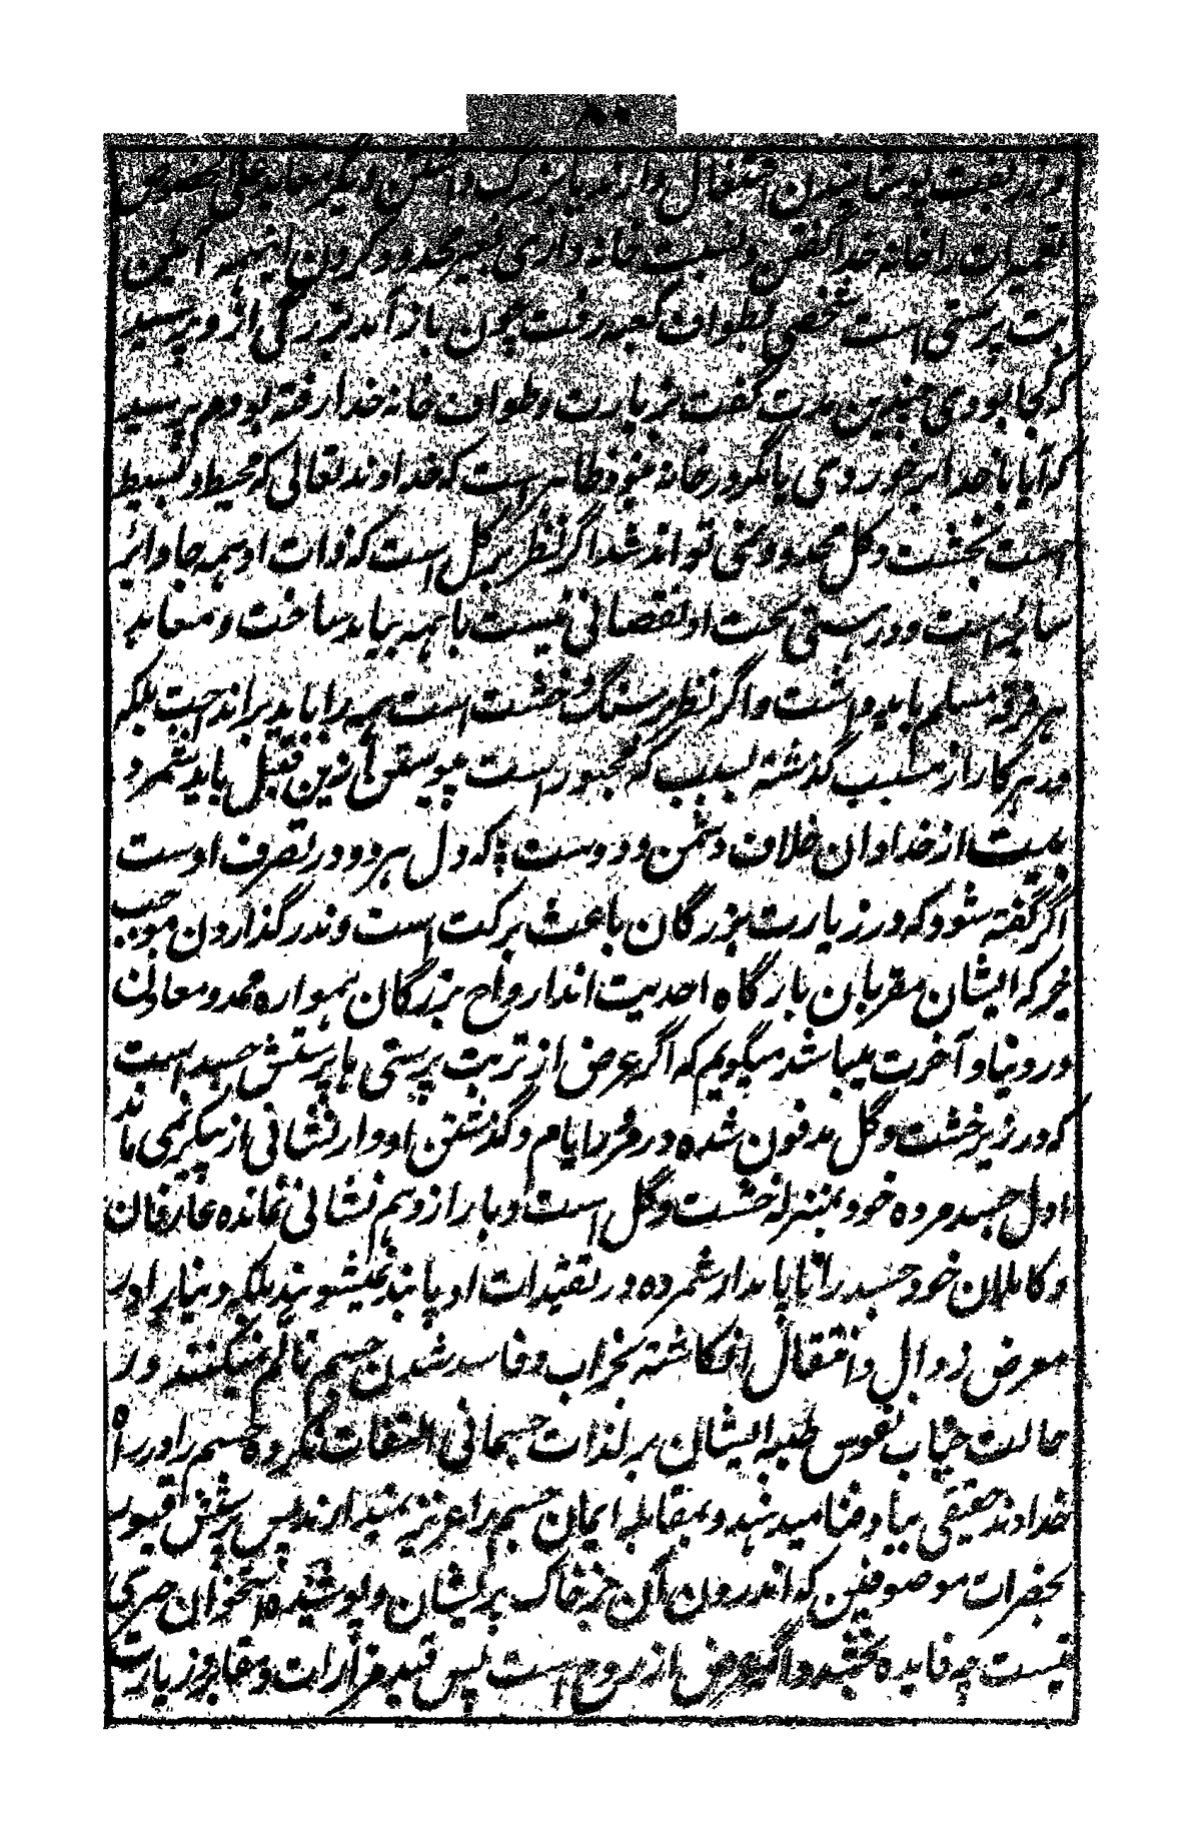 ۸۰
وزر بفت پوشانیدن اشتغال دارند یا بزرگ داشتن دیگر معابد علی الخصوص
تعمیرات را خانه خدا گفتن و نسبت خانه داری بغیر محدود کردن اینهمه آئین
بت پرستی است شخصی بطواف کعبه رفت چون باز آمد بزرگی ازو پرسید
که کجا بودی چندین مدت گفت بزیارت و طواف خانه خدا رفته بودم پرسید
که آیا با خدا برخوردی یا مگر در خانه نبود ظاهر است که خداوند تعالی که محیط و بسیط
است بخشت و گل محدود نمی تواند شد اگر نظر بر کل است که ذات او همه جا دائر
سائر است و در هستی بحت او نقصانی نیست با همه بباید ساخت و معابد
هر فرقه مسلم باید داشت و اگر نظر بر سنگ و خشت است همه را باید برانداخت بلکه
در هر کار از مسبب گذشته بسبب که مجبور است پیوستن ازین قبیل باید شمرد
بیت از خدا دان خلاف دشمن و دوست ؛ که دل هر دو در تصرف اوست
اگر گفته شود که در زیارت بزرگان باعث برکت است و نذر گذاردن موجب
خیر که ایشان مقربان بارگاه احدیت اند ارواح بزرگان همواره ممد و معاون
در دنیا و آخرت میباشد میگویم که اگر عرض از تربت پرستی ها پرستش جسد است
که در زیر خشت و گل مدفون شده در مرر ایام و گذشتن ادوار نشانی از پیکر نمی ماند
اول جسد مرده خود بمنزله خشت و گل است و بار از و هم نشانی نمانده عارفان
و کاملان خود جسد را ناپایدار شمرده در تقیدات او پابند نمیشوند بلکه دنیا را در
معرض زوال و انتقال انگاشته بخراب و فاسد شدن جسم تالم نمیکنند و در
حالت حیات نفوس طیبه ایشان بر لذات جسمانی التفات نکرده جسم را در راه
خداوند حقیقی بباد فنا میدهند و بمقابله ایمان جسم را عزیز نمیدارند پس پرستش قبور
بحضرات موصوفین که اندرون آن جز خاک پریشان و پوشیده استخوان چیزی
نیست چه فایده بخشد و اگر عرض از روح است پس قید مزارات و مقابر و زیارت